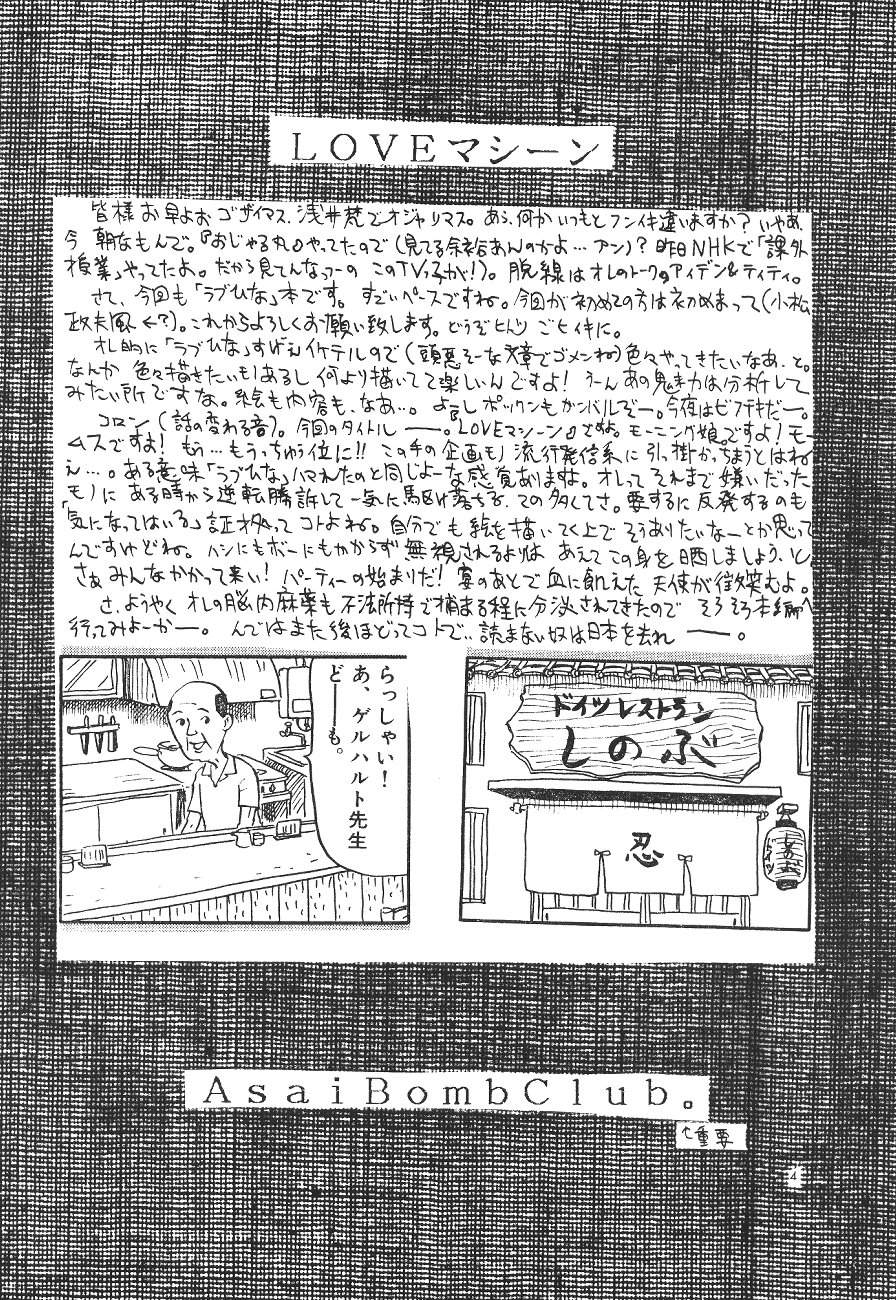 LOVEマシーン
皆様お早よおゴザイマス、浅井梵でオジャリマス。あら、何かいつもとフンイキ違いますか？いやあ、
今朝なもんで。『おじゃる丸』やってたので(見てる余裕あんのかよ…アン)？昨日NHKで「課外
授業」やってたよ。だから見てんなっつーのこのTVっ子が！)。脱線はオレのトークのアイデン&ティティ。
さて、今回も「ラブひな」本です。すごいペースですね。今回が初めての方は初めまして(小松
政夫風←？)。これからよろしくお願い致します。どうぞヒトツごヒイキに。
オレ的に「ラブひな」すげえイケテルので(頭悪そーな文章でゴメンね)色々やってきたいなあ、と。
なんか色々描きたいモノあるし何より描いてて楽しいんですよ！うーんあの魅力は分析して
みたい所ですな。絵も内容も、なあ…。よしボックンもガンバルぞー。今夜はビフテキだー。
コロン(話の変わる音)。今回のタイトルー。『LOVEマシーン』ですよ。モーニング娘。ですよ！モー
ムスですよ！もう…もうっちゅう位に!!この手の企画モノ流行発信系に引っ掛かっちまうとはね
え…。ある意味「ラブひな」ハマれたのと同じよーな感覚ありますよ。オレってそれまで嫌いだった
モノにある時から逆転勝訴して一気に駆け落ちる、ての多くてさ。要するに反発するのも
「気になってはいる」証拠ってコトよね。自分でも絵を描いてく上でそうありたいなーとか思って
んですけどね。ハシにもボーにもかからず無視されるよりは あえてこの身を晒しましょう、と。
さぁみんなかかって来い！パーティーの始まりだ！宴のあとで血に飢えた天使が微笑むよ。
さ、ようやくオレの脳内麻薬も不法所持で捕まる程に分泌されてきたので そろそろ本編へ
行ってみよーかー。んではまた後ほどってコトで…読まない奴は日本を去れー。
ドイツレストラン
しのぶ
忍
らっしゃい！
あ、ゲルハルト先生
どーも。
AsaiBombClub。
↑重要
4